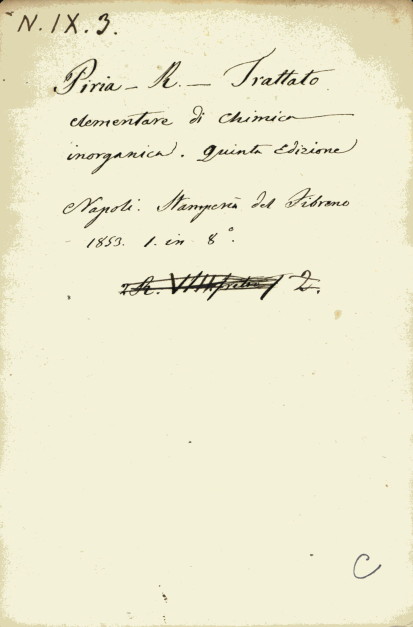 N. IX. 3.
Piria - R. - Trattato
elementare di Chimica
inorganica. Quinta Edizione
Napoli. Stamperia del Fibreno
1853. 1. in 8°.
R. VIII 2.
C